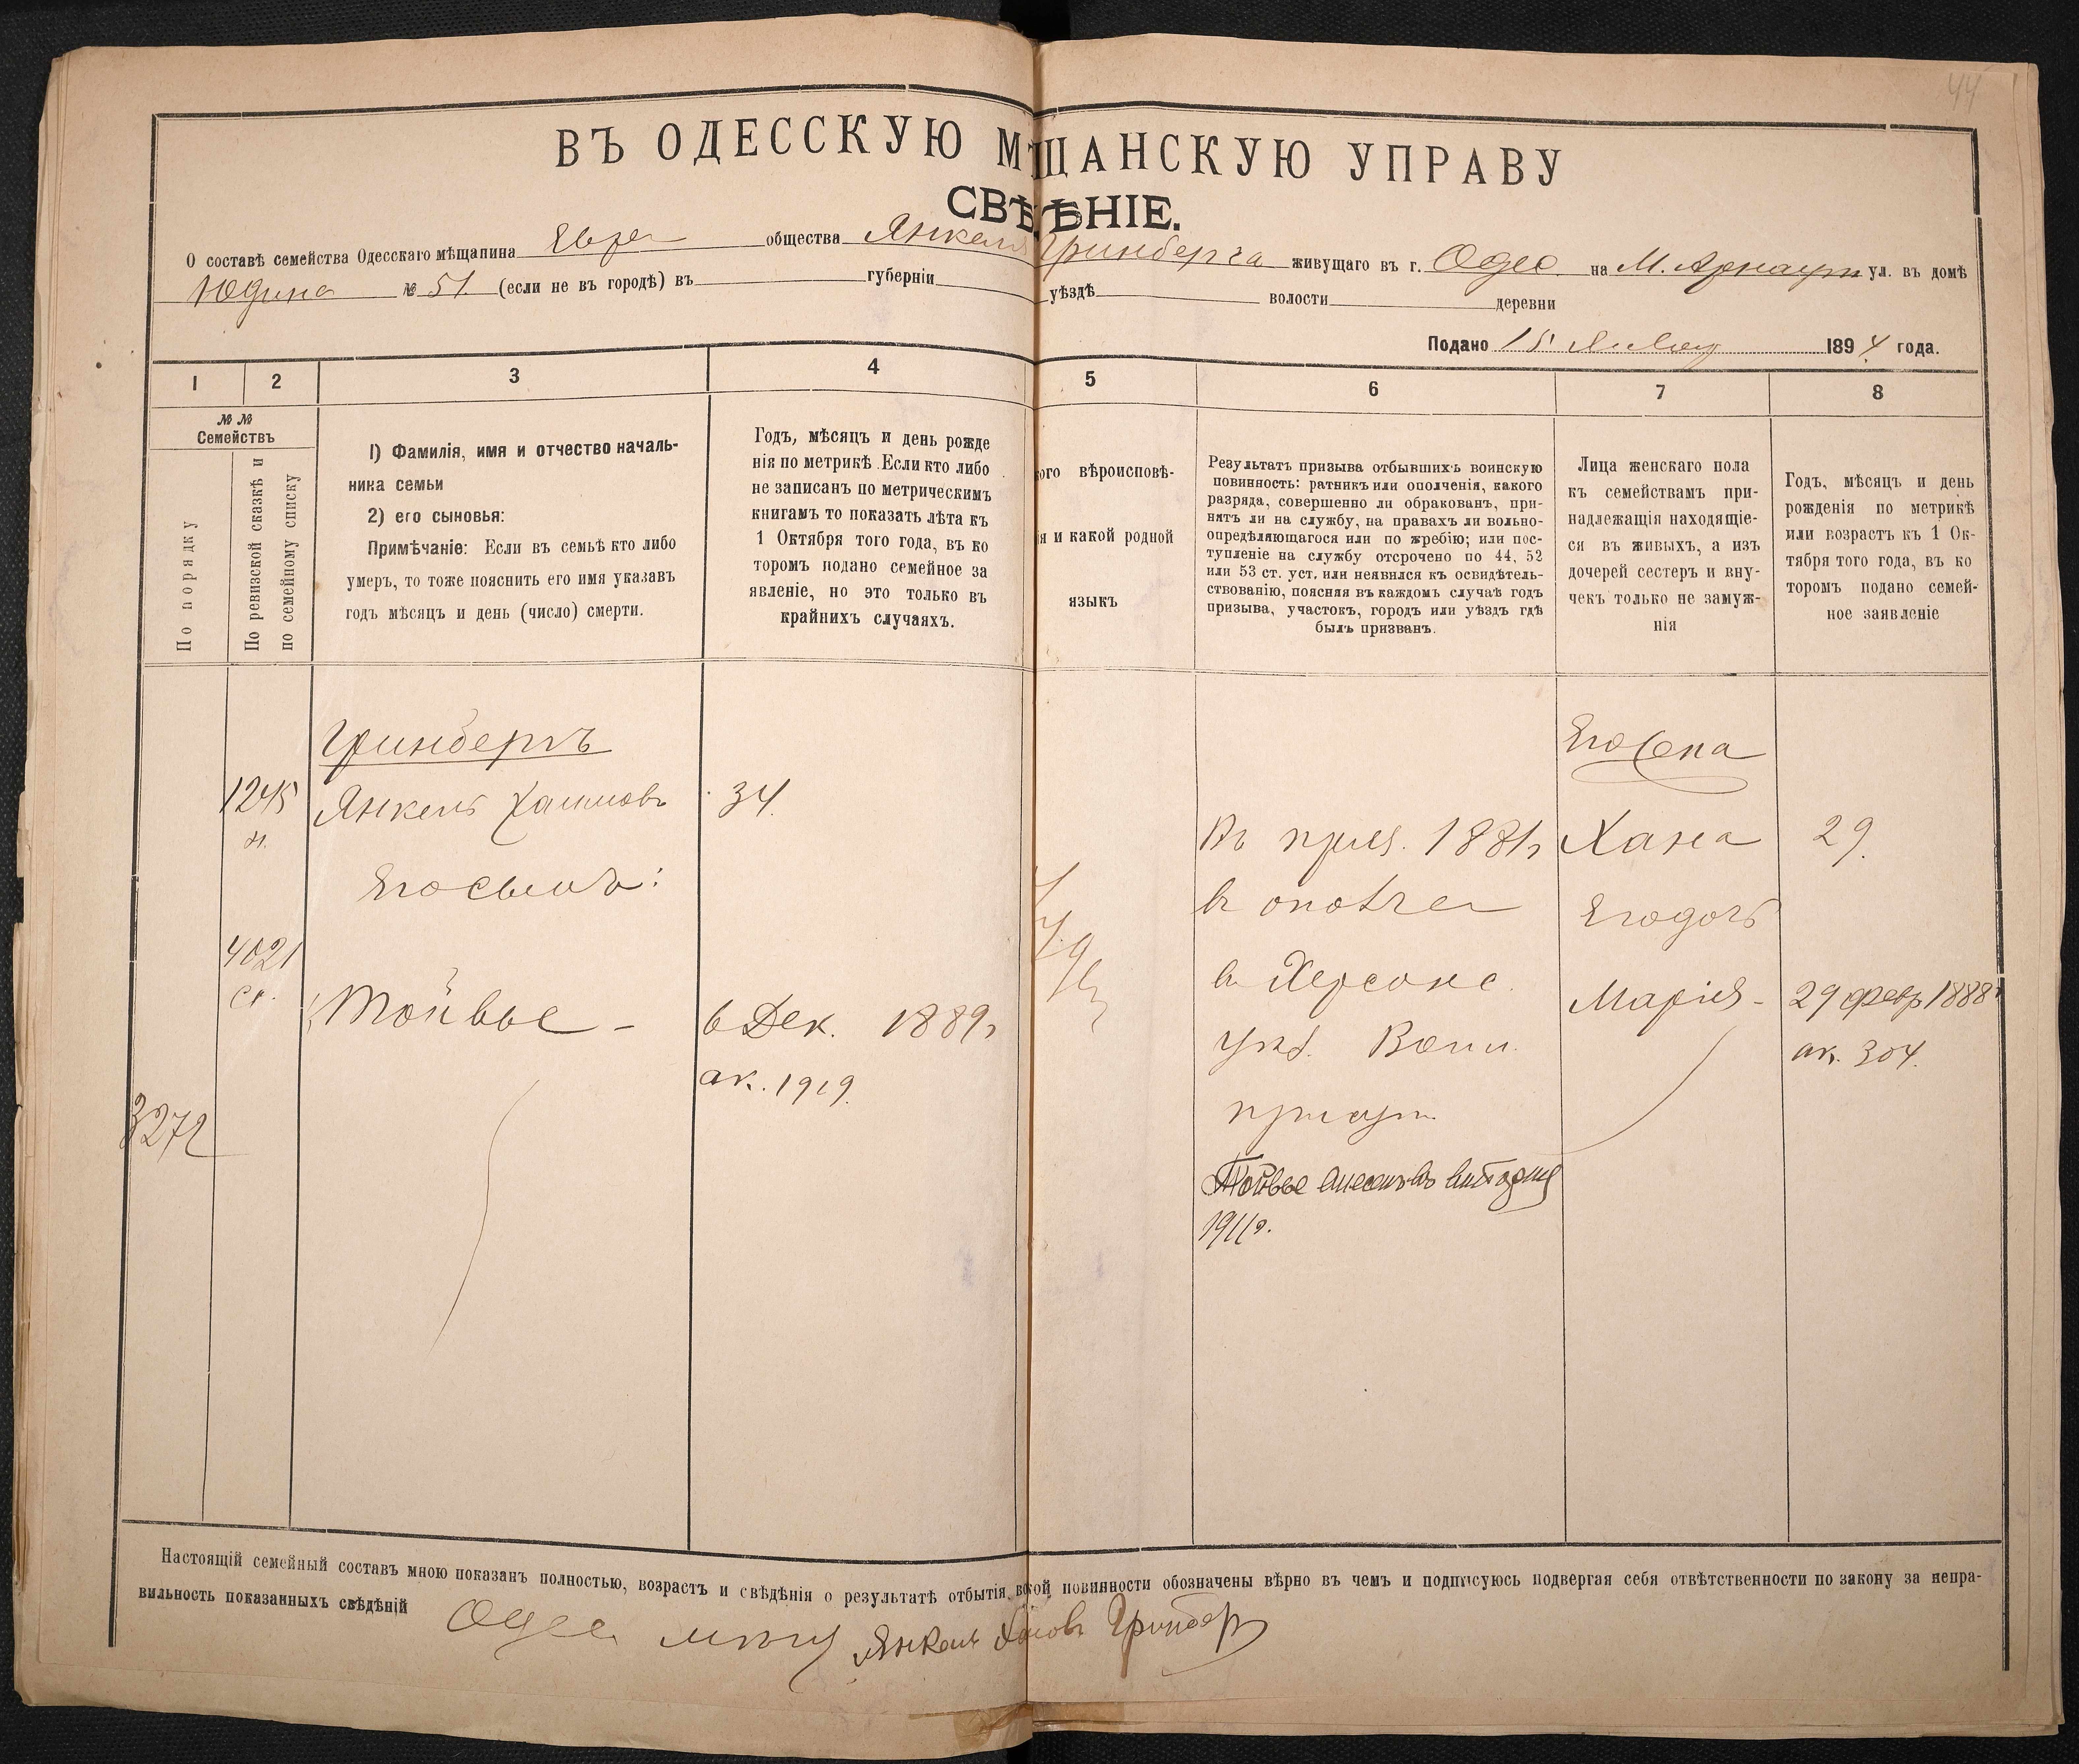 44
ВЪ ОДЕССКУЮ МѢЩАНСКУЮ УПРАВУ
СВѢДѢНІЕ.
О составѣ семейства Одесскаго мѣщанина Евре общества Янкеля Гринберга живущаго въ г. Одес. на М. Арнаут ул. въ домѣ
Юдина № 51. (если не въ городѣ) въ губерніи уѣздѣ волости деревни
Подано 15 1894 года.
1 2 3 4 5 6 7 8
№ №
Семействъ
По порядку
По ревизской сказкѣ и
по семейному списку
1) Фамилія, имя и отчество началь-
ника семьи
2) его сыновья:
Примѣчаніе: Если въ семьѣ кто либо
умеръ, то тоже пояснить его имя указавъ
годъ мѣсяцъ и день (число) смерти.
Годъ, мѣсяцъ и день рожде
нія по метрикѣ. Если кто либо
не записанъ по метрическимъ
книгамъ то показать лѣта къ
1 Октября того года, въ ко
торомъ подано семейное за
явленіе, но это только въ
крайнихъ случаяхъ.
кого вѣроисповѣ-
ія и какой родной
языкъ
Результатъ призыва отбывшихъ воинскую
повинность: ратникъ или ополченія, какого
разряда, совершенно ли обракованъ, при-
нятъ ли на службу, на правахъ ли вольно-
опредѣляющагося или по жребію; или пос-
тупленіе на службу отсрочено по 44, 52
или 53 ст. уст. или неявился къ освидѣтель-
ствованію, поясняя въ каждомъ случаѣ годъ
призыва, участокъ, городъ или уѣздъ гдѣ
былъ призванъ.
Лица женскаго пола
къ семействамъ при-
надлежащія находящіе-
ся въ живыхъ, а изъ
дочерей сестеръ и вну-
чекъ только не замуж-
нія
Годъ, мѣсяцъ и день
рожденія по метрикѣ
или возрастъ къ 1 Ок-
тября того года, въ ко
торомъ подано семей-
ное заявленіе
Гринбергъ
1245
н.
Янкель Хаимовъ
34.
Его сынъ:
4021
ст.
Тойвье -
6 Дек. 1889г
ак. 1919.
3272
Въ приз. 1881г
в
в Херсонс.
уѣз. Воин.
присут.
Тойвье внесенъ въ
1911г.
Его жена
Хана
29.
Его дочь
Марія -
29 февр 1888г
ак. 304.
Настоящій семейный составъ мною показанъ полностью, возрастъ и свѣдѣнія о результатѣ отбытія кой повинности обозначены вѣрно въ чемъ и подписуюсь подвергая себя отвѣтственности по закону за непра-
вильность показанныхъ свѣдѣній
Одес Янкель Хаимовъ Гринберг